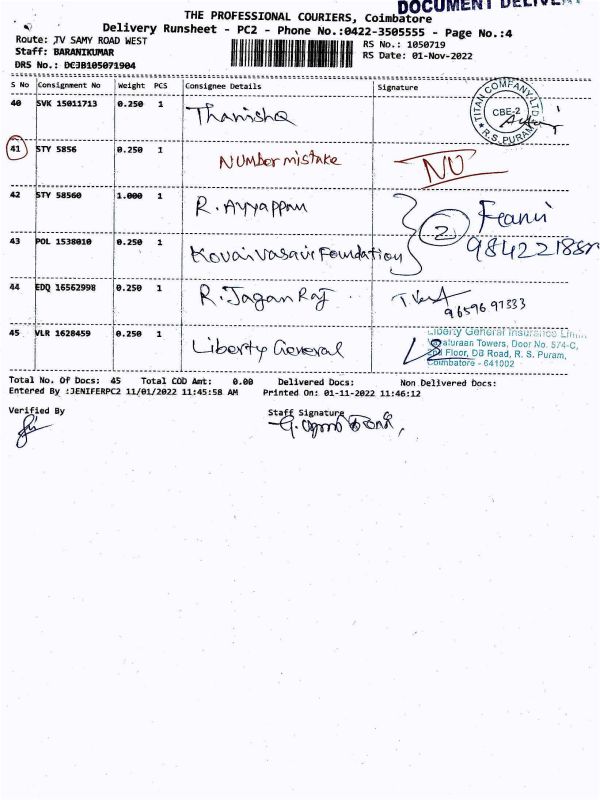 DOCUMENT
THE PROFESSIONAL COURIERS, Coimbatore
Delivery Runsheet - PC2 - Phone No.:0422-3505555 - Page No.:4
Route: JV SAMY ROAD WEST
RS No.: 1050719
Staff: BARANIKUMAR
RS Date: 01-Nov-2022
DRS No.: DCJB105071904
S No Consignment No Weight PCS Consignee Details Signature
40 SVK 15011713 0.250 1 Thanishq
TITAN COMPANY LTD
CBE-2
R.S. PURAM
41 STY 5856 0.250 1 NUMber mistake NU
42 STY 58560 1.000 1 R. Ayyappan
2
43 POL 1538010 0.250 1 Kovai Vasavi Foundation
44 EDQ 16562998 0.250 1 R. Jagan Raj
45 VLR 1628459 0.250 1 Liberty General
Liberty General Insurance
Towers, Door No. 574-C,
2nd Floor, DB Road, R. S. Puram,
Coimbatore - 641002
Total No. Of Docs: 45 Total COD Amt: 0.00 Delivered Docs: Non Delivered Docs:
Entered By :JENIFERPC2 11/01/2022 11:45:58 AM Printed On: 01-11-2022 11:46:12
Verified By Staff Signature